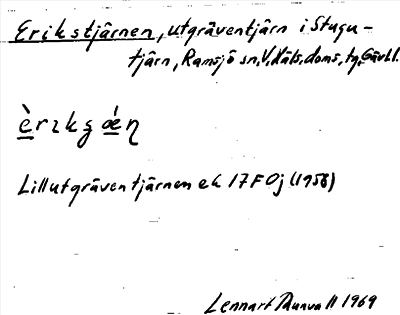 Erikstjärnen, utgräventjärn i Stugu-
tjärn, Ramsjö sn, V. Häls. doms, tg, Gävl. l.
èrɪkʂǽn̥
Lillutgräventjärnen ek 17F0j (1956)
Lennart 1969